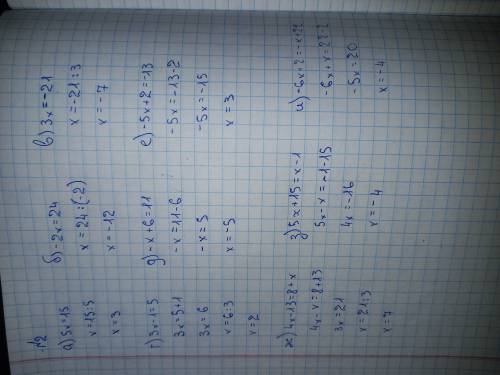 №2
а) 5x=15
x=15:5
x=3
б) -2x=24
x=24:(-2)
x=-12
в) 3x=-21
x=-21:3
x=-7
г) 3x-1=5
3x=5+1
3x=6
x=6:3
x=2
д) -x+6=11
-x=11-6
-x=5
x=-5
е) -5x+2=-13
-5x=-13-2
-5x=-15
x=3
ж) 4x-13=8+x
4x-x=8+13
3x=21
x=21:3
x=7
з) 5x+15=x-1
5x-x=-1-15
4x=-16
x=-4
и) -6x+2=-x+22
-6x+x=22-2
-5x=20
x=-4